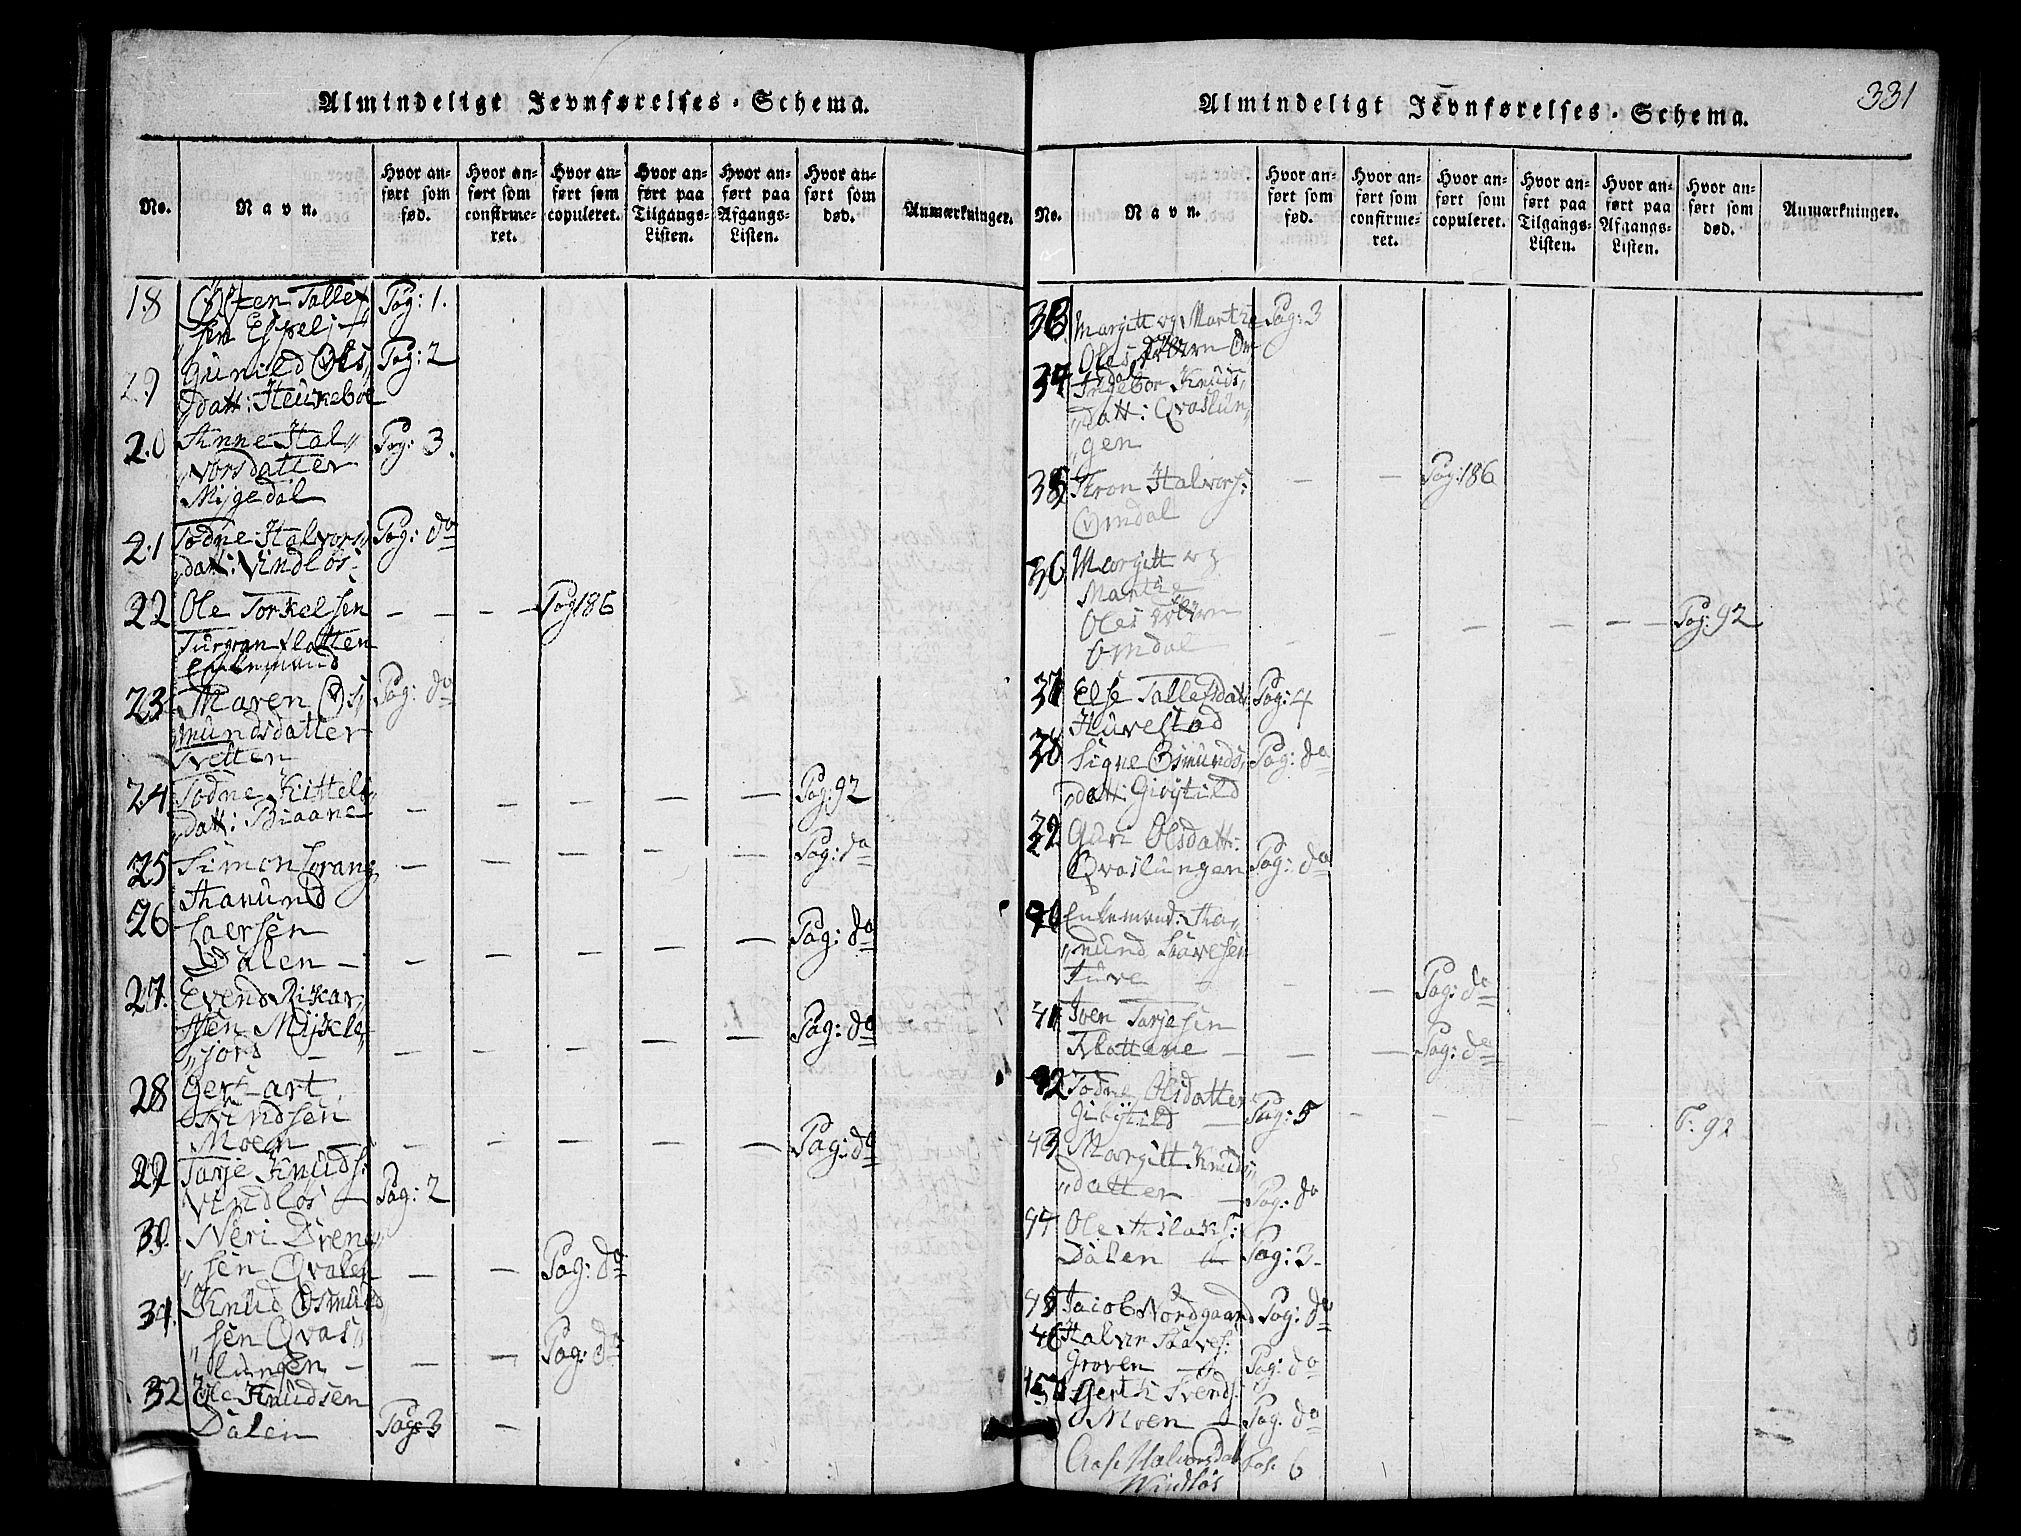 Almindeligt Jevnførelses-Schema.
No.
Navn.
Hvor an-
ført som
fød.
Hvor an-
ført som
confirme-
ret.
Hvor an-
ført som
copuleret.
Hvor an-
ført paa
Tilgangs-
Listen.
Hvor an-
ført paa
Afgangs-
Listen.
Hvor an-
ført som
død.
Anmærkninger.
18 Tallef Pag: 1.
sen Espeli
19 Gunild Ols„ Pag: 2
datt: Heukeboe
20 Anne Hal„ Pag: 3.
vorsdatter
Mijgedal
21 Todne Halvors„ Pag: do
„datt: Vindløs
22 Ole Torkelsen — — Pag 186
Flatten
Enkemand
23 Maren Os„ Pag: do
mundsdatter
Tvetten
24 Todne Kittels„
„datt: Biaane — — — — — Pag: 92
25 Simon — — — — — Pag: do
26 Thamund
Dalen — — — — — — Pag: do
27. Evend Rikar„
„sen Mijkle„
„jord — — — — — — Pag: do
28 Gert
Svindsen
Moen — — — — — — Pag: do
29 Tarje Knuds:
Vindløs — Pag: 2
30. Neri Drene„
„sen Qvalen — — Pag: do
31. Knud Osmund„
„sen Qvas„
„lungen — — — Pag: do
32 Ole Knudsen
Dalen Pag 3 —
Almindeligt Jevnførelses-Schema.
331
No.
Navn.
Hvor an-
ført som
fød.
Hvor an-
ført som
confirme-
ret.
Hvor an-
ført som
copuleret.
Hvor an-
ført paa
Tilgangs-
Listen.
Hvor an-
ført paa
Afgangs-
Listen.
Hvor an-
ført som
død.
Anmærkninger.
33 Margitt og Marthe Pag: 3
Oles Om
dal
34 Ingebor Knuds„
„datt: Qvaslun„
„gen
35 Tron Halvors: — — Pag: 186
Omdal
36 Margitt og
Marthe
Oles
Omdal — — — — — Pag: 92
37 Else Tallefsdatt: Pag: 4
Huvestad
38 Signe Osmunds„ Pag: do
„datt: Givijtild
39 Guri Olsdatt:
Qvaslungen Pag: do
40 Enkemand: Tha„
„mund Saavesen
Juve — — Pag: do
41 Joen Tarjesen
Flattene — — — Pag: do
42 Todne Olsdatter
— Pag: 5 — — — P: 92
43 Margitt Knuds„
„datter — Pag: do
44 Ole Aslaks:
Dalen — Pag: 3
45 Jacob Nordgaard Pag: do
46 Halvor Saaves:
Groven — Pag: do
Moen — Pag: do
Aase Halvorsdat Pag. 6
Windløs